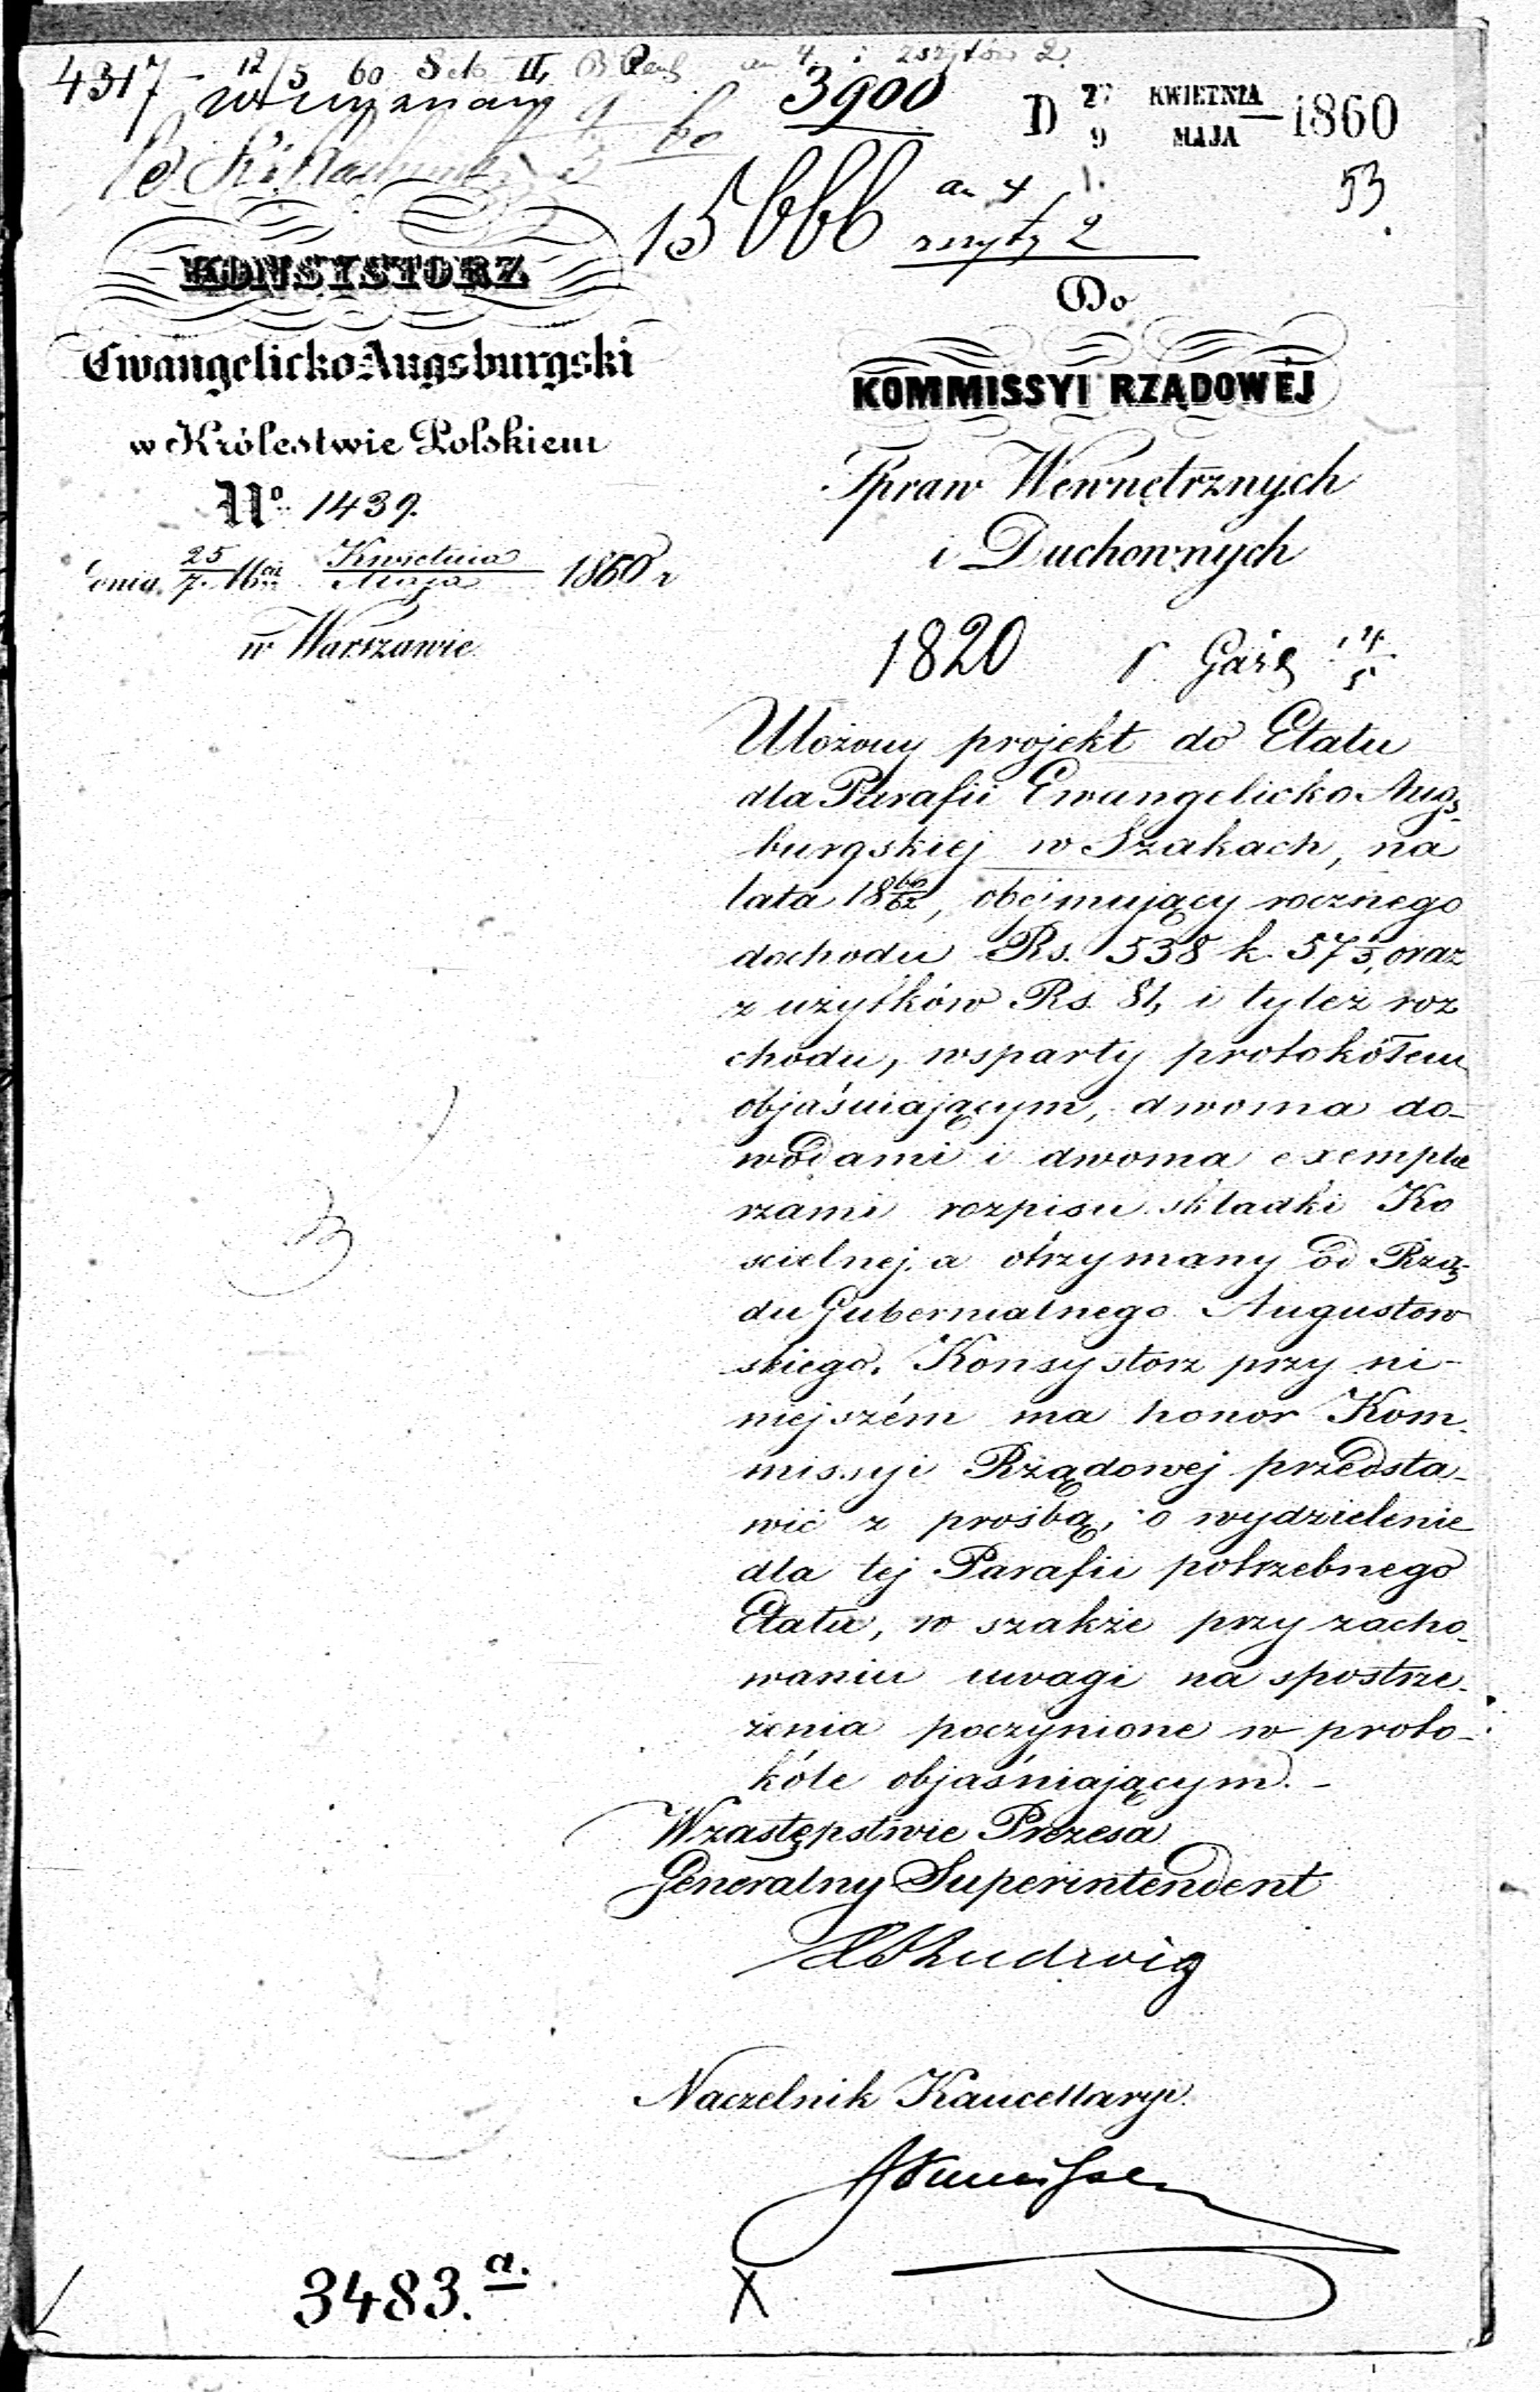 4317 - 12/5 60 Sek II, an 4 i zszytów 2.
3900
D 27 KWIETNIA 1860
9 MAJA
53
15666 an 4 1.
zszyty 2
KONSYSTORZ
Ewangelicko-Augsburgski
w Królestwie Polskiem
No 1439.
dnia 25/7 Kwietnia/Maja 1860 r
w Warszawie
Do
KOMMISSYI RZĄDOWÉJ
Spraw Wewnętrznych
i Duchownych
1820
Ułożony projekt do Etatu
dla Parafii Ewangelicko Augs-
burgskiej w Szakach, na
lata 18 60/62, obejmujący rocznego
dochodu Rs. 538 k. 57 1/5, oraz
z użytków Rs. 81, i tyleż roz
chodu, wsparty protokółem
objaśniającym, dwoma do-
wodami i dwoma exempla
rzami rozpisu składki Ko
scielnej, a otrzymany od Rzą-
du Gubernialnego Augustow
skiego, Konsystorz przy ni-
niejszém ma honor Kom-
missyi Rządowej przedsta-
wić z prośbą, o wydzielenie
dla tej Parafii potrzebnego
Etatu, w szakże przy zacho-
waniu uwagi na spostrze-
żenia poczynione w proto-
kóle objaśniającym. -
W zastępstwie Prezesa
Generalny Superintendent
Ludwig
Naczelnik Kancellaryi
3483. a.
X